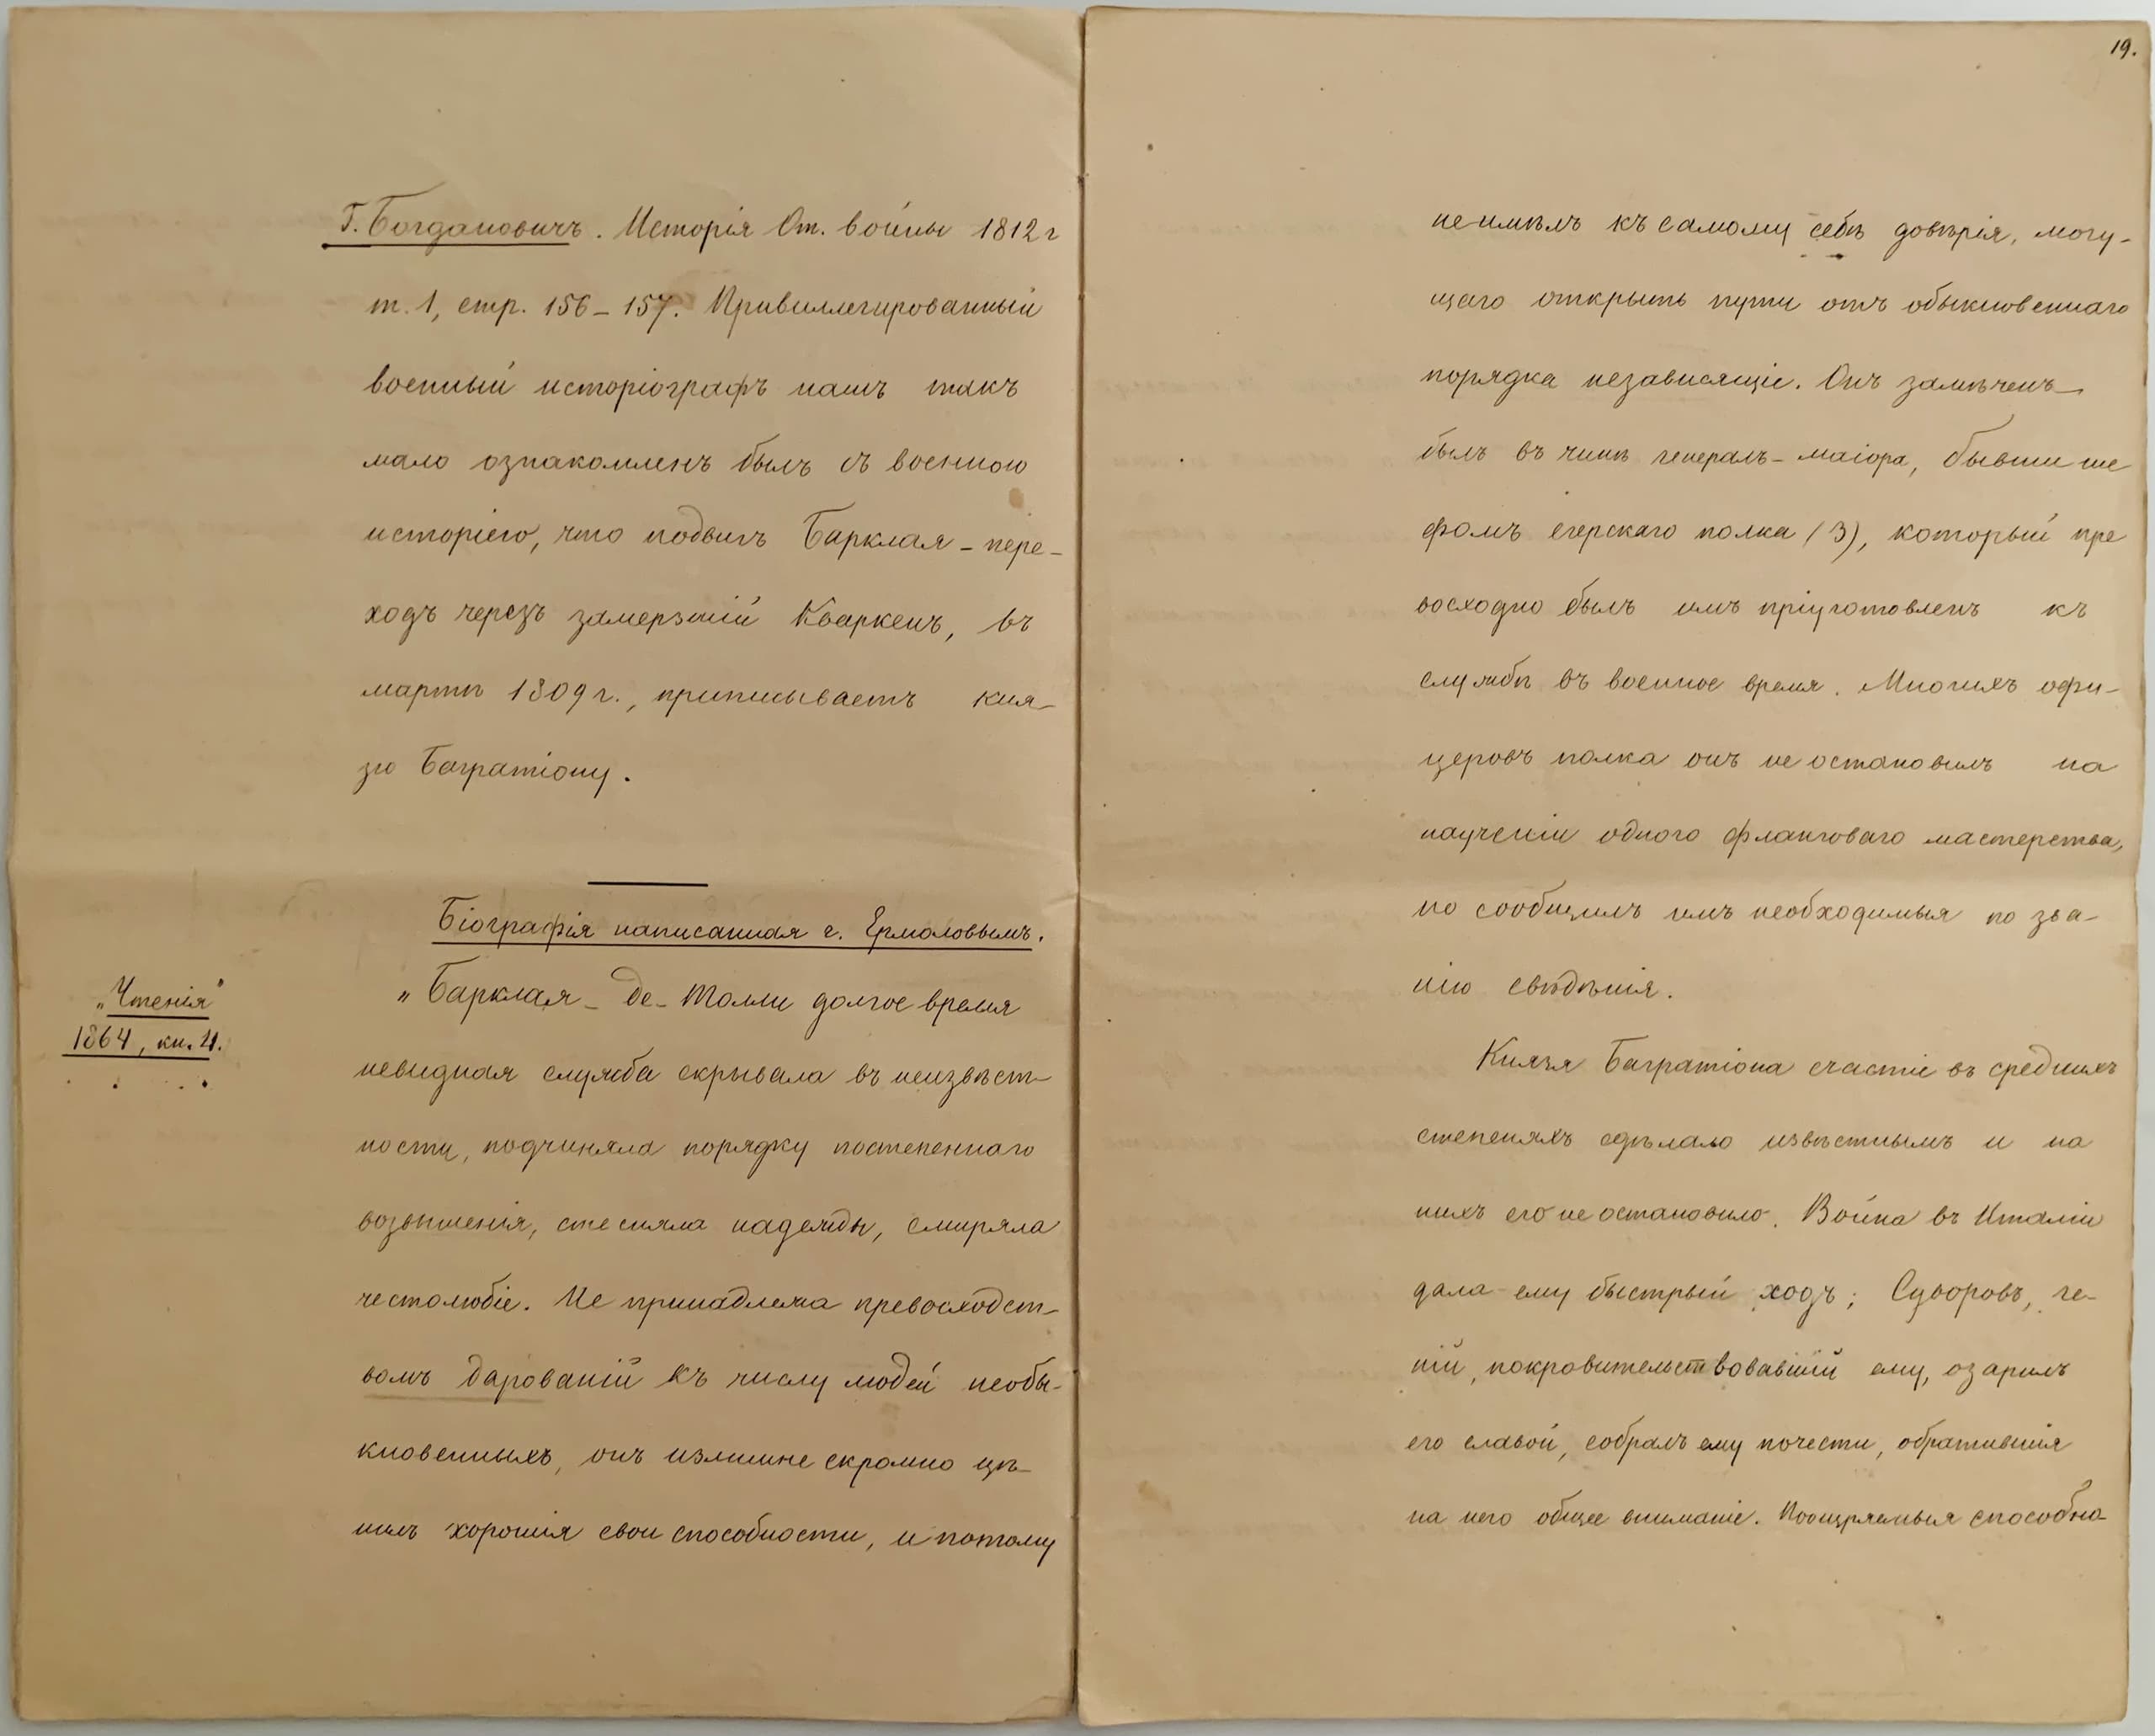 Г. Богдановичъ. Исторія От. войны 1812 г
т. 1, стр. 156–157. Привиллегированный
военный исторіографъ нашъ такъ
мало ознакомленъ былъ съ военною
исторіею, что подвигъ Барклая – пере-
ходъ черезъ замерзшій Кваркенъ, въ
мартѣ 1809 г., приписываетъ кня-
зю Багратіону.
Біографія написанная г. Ермоловымъ.
„Чтенія"
1864, кн. 4.
„Барклая-де-Толли долгое время
невидная служба скрывала въ неизвѣст-
ности, подчиняла порядку постепеннаго
возвышенія, стесняла надежды, смиряла
честолюбіе. Не принадлежа превосходст-
вомъ дарованій къ числу людей необы-
кновенныхъ, онъ излишне скромно цѣ-
нилъ хорошія свои способности, и потому
19.
не имѣлъ къ самому себѣ довѣрія, могу-
щаго открыть пути отъ обыкновеннаго
порядка независящіе. Онъ замѣченъ
былъ въ чинѣ генералъ-маіора, бывши ше
фомъ егерскаго полка (3), который пре
восходно былъ имъ пріуготовленъ къ
службѣ въ военное время. Многихъ офи-
церовъ полка онъ не остановилъ на
наученіи одного фланговаго мастерства,
но сообщилъ имъ необходимыя по зва-
нію свѣдѣнія.
Князя Багратіона счастіе въ среднихъ
степеняхъ сдѣлало извѣстнымъ и на
нихъ его не остановило. Война въ Италіи
дала ему быстрый ходъ; Суворовъ, ге-
ній, покровительствовавшій ему, озарилъ
его славой, собралъ ему почести, обратившія
на него общее вниманіе. Поощряемыя способно-